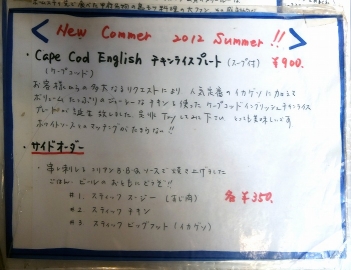 New Commer 2012 Summer !!
・Cape Cod English チキンライスプレート (スープ付) ¥900.
(ケープコッド)
お客様からの多大なるリクエストにより 人気定番のイカゲソに加えて
ボリュームたっぷりのジューシーなチキンを使った ケープコッドイングリッシュチキンライス
プレートが誕生致しました。是非 Tryしてみて下さい。とっても美味しいです
ホワイトソースとのマッチングがたまらなーい!!
・サイドオーダー
・串に刺してコリアンB·B·Qソースで焼き上げました
ごはん・ビールのおともにどうぞ!!
#1. スティーブ ス・ジー (すじ肉)
#2 スティーブ チキン
#3 スティーブ ビッグフット (イカゲソ)
各 ¥350.